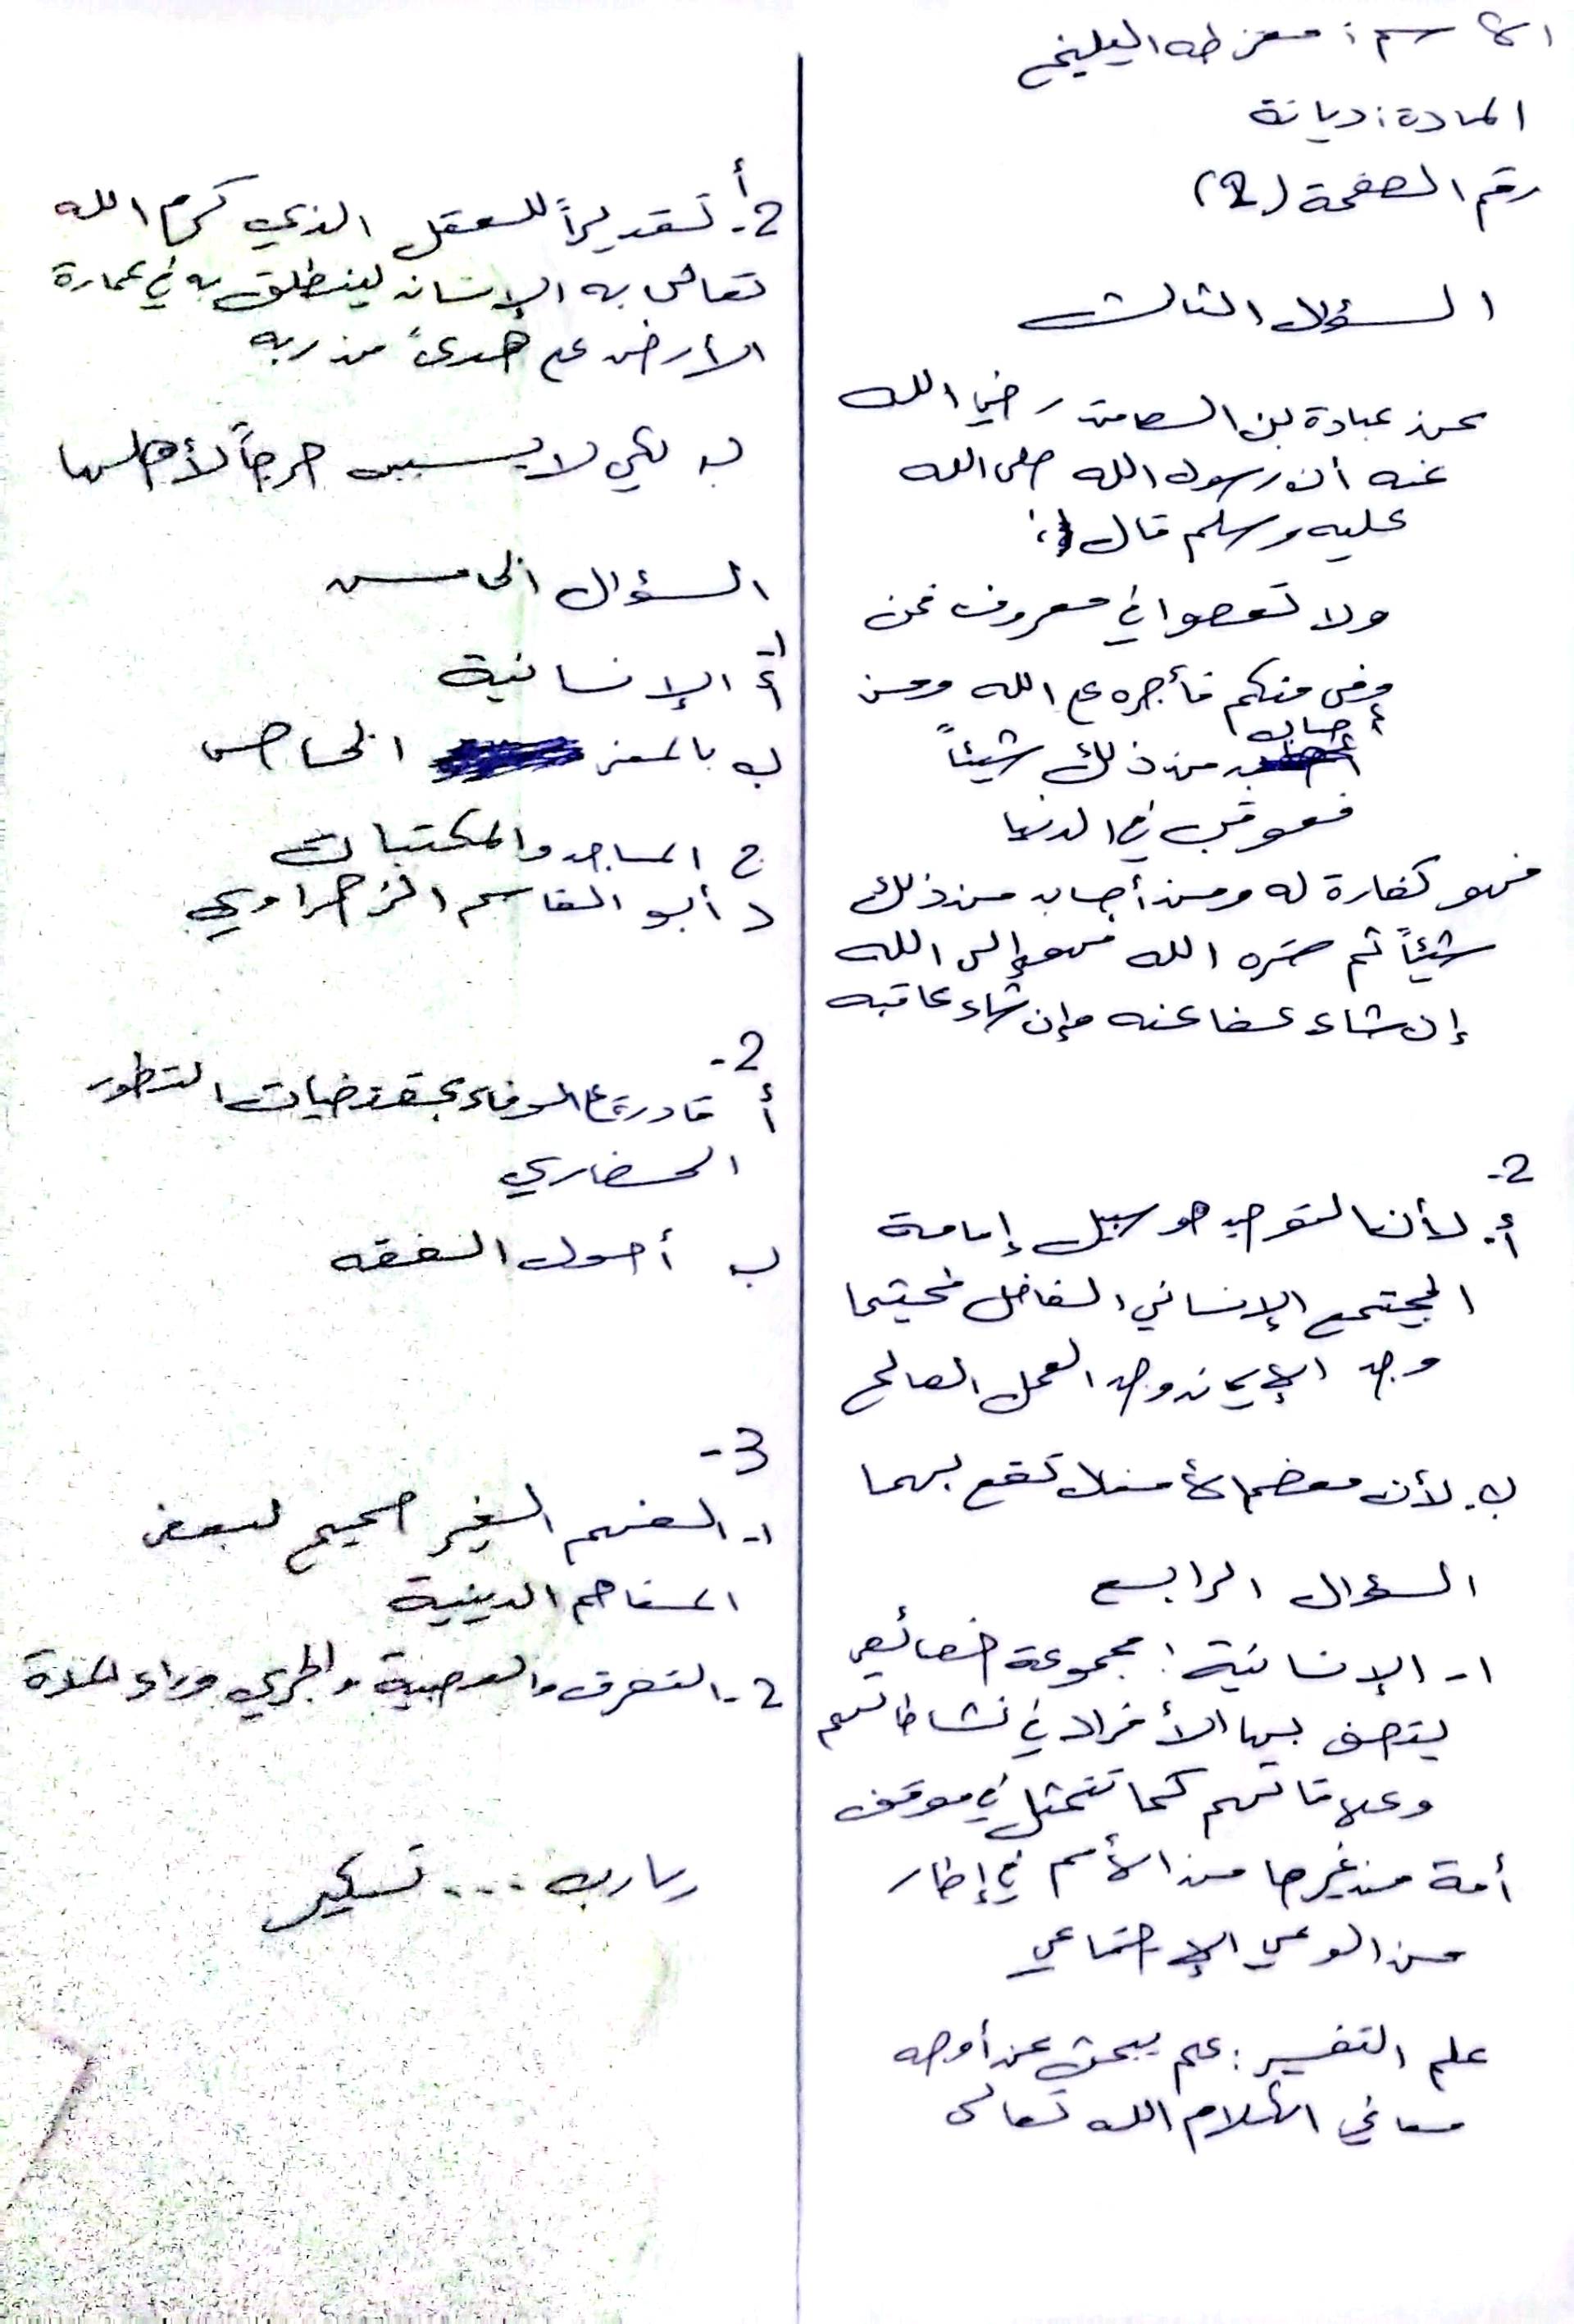 الاسم : معن طه اليليخي
المادة : ديانة
رقم الصفحة (2)
السؤال الثالث
عن عبادة بن الصامت رضي الله
عنه أن رسول الله صلى الله
عليه وسلم قال :
ولا تعصوا في معروف فمن
وفى منكم فأجره على الله ومن
أصاب من ذلك شيئاً
فعوقب في الدنيا
فهو كفارة له ومن أصاب من ذلك
شيئاً ثم ستره الله فهو إلى الله
إن شاء عفا عنه وإن شاء عاقبه
2-
أ. لأن التوحيد هو سبيل إقامة
المجتمع الإنساني الفاضل فحيثما
وجد الإيمان وجد العمل الصالح
ب. لأن معضم الأفعال تقع بهما
السؤال الرابع
1- الإنسانية : مجموعة خصائص
يتصف بها الأفراد في نشاطاتهم
وعلاقاتهم كما تتمثل في موقف
أمة من غيرها من الأمم في إطار
من الوعي الإجتماعي
علم التفسير : علم يبحث عن أوجه
معاني الكلام الله تعالى
2- أ تقديراً للعقل الذي كرم الله
تعالى به الإنسان لينطلق به في عمارة
الأرض على هدىً من ربه
ب لكي لا يسبب حرجاً لأهلها
السؤال الخامس
1-
أ الإنسانية
ب بالمعنى الخاص
ج المساجد والمكتبات
د أبو القاسم الزهراوي
2-
أ قادرة على الوفاء بمقتضيات التطور
الحضاري
ب أصول الفقه
3-
1- الفهم الغير صحيح لبعض
المفاهم الدينية
2- التفرق والعصبية والجري وراء المادة
يا رب ...